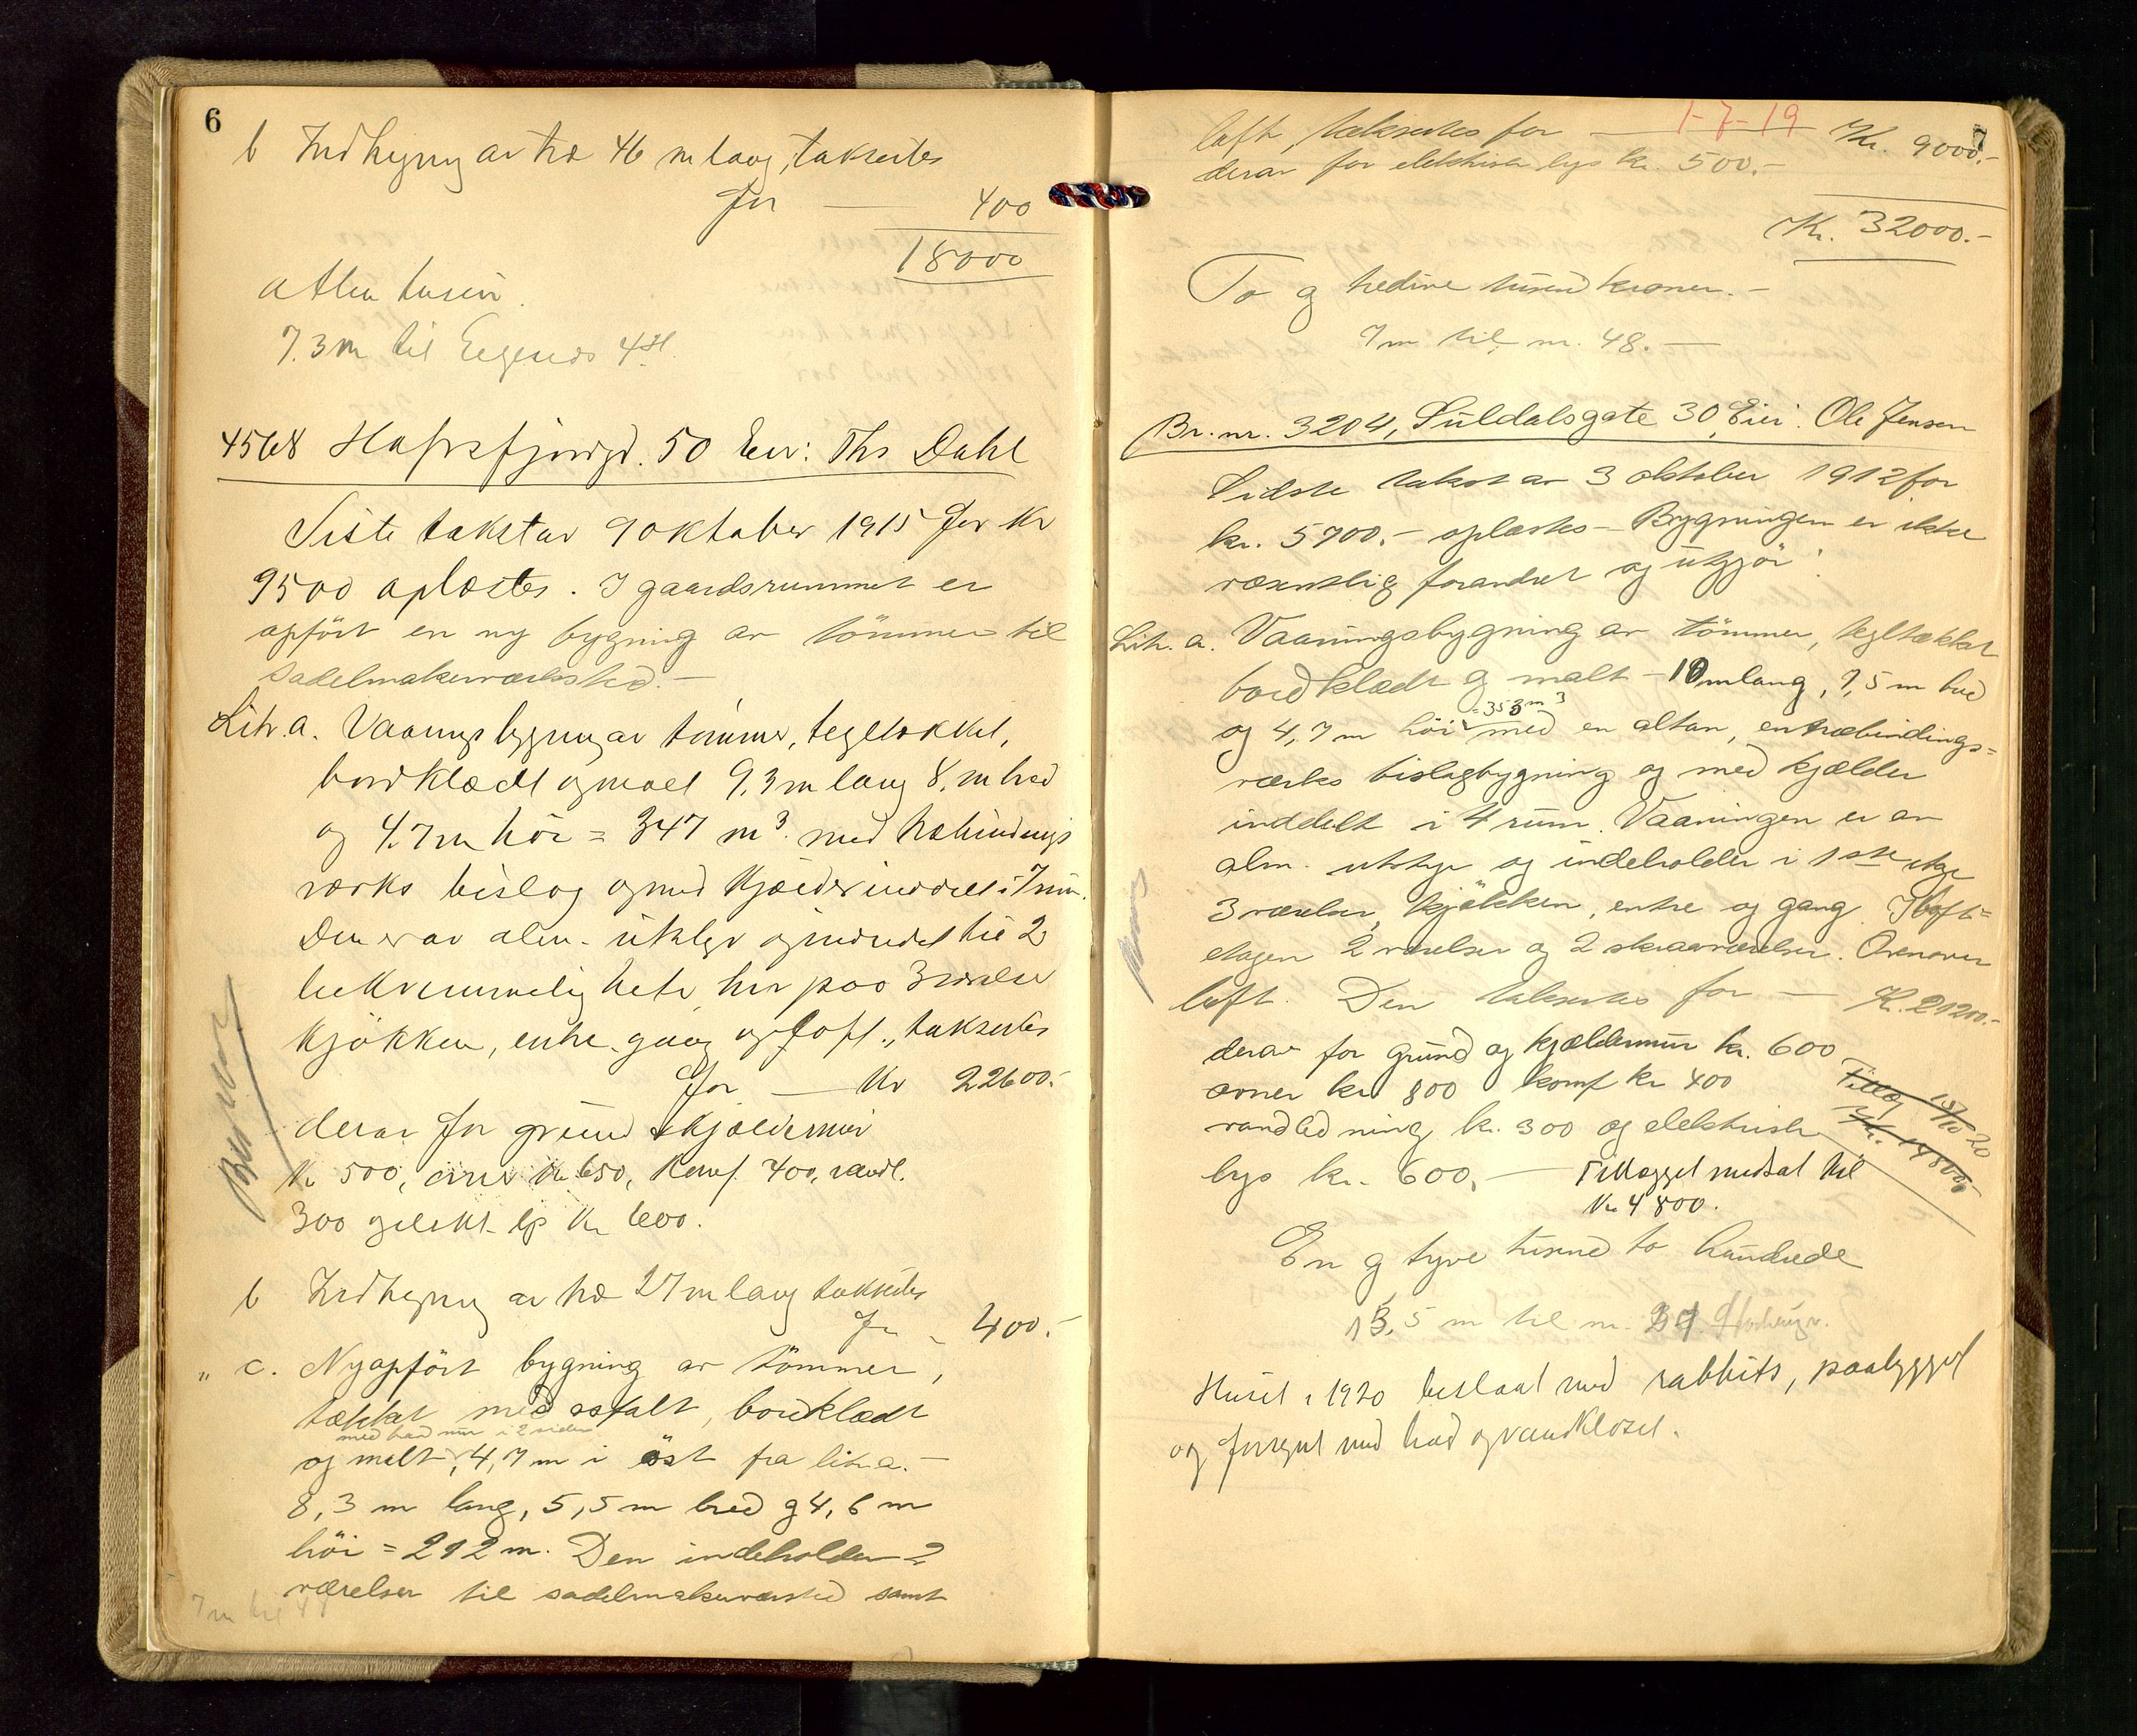 6
b Indhegning av træ 46 m lang, takseres
for — 400
18000
Atten tusen.
7.3 m til Eiganes 42.
4568 Hafrsfjordgd. 50 Eier: Ths Dahl
Siste takst av 9 oktober 1915 for Kr
9500 oplæstes. I gaardsrummet er
opført en ny bygning av tømmer til
sadelmakerværksted. —
Litr. a. Vaaningsbygning av tømmer, tegltækket,
bordklædt og malt 9,3 m lang 8. m bred
og 4.7 m høi = 347 m³. med træbindings
værks bislag og med kjælder inddelt i 7 rum.
Den er av alm. utstyr og indredet til 2
bekvemmeligheter hver paa 3 værelser
kjøkken, entre, gang og loft., takseres
for — Kr 22600.-
derav for grund & kjældermur
Kr 500, ovner Kr 650, komf. 400, vandl.
300 og elekt. lys Kr 600.
b Indhegning av træ 27 m lang takseres
for - 400.-
" c. Nyopført bygning av tømmer,
tækket med asfalt, bordklædt
med brandmur i 2 sider
og malt, 4,7 m i öst fra litr. a. -
8,3 m lang, 5,5 m bred og 4,6 m
høi = 212 m. Den indeholder 2
værelser til sadelmakerværksted samt
7 m til 48
7
loft, takseres for — 1-7-19 Kr. 9000.-
derav for elektrisk lys kr. 500.-
Kr. 32000.-
To og tredive tusend kroner. -
7 m til nr. 48. —
Br. nr. 3204, Suldalsgate 30, Eier: Ole Jensen
Sidste takst av 3 oktober 1912 for
kr. 5700.- oplæstes - Bygningen er ikke
væsentlig forandret og utgjør:
Litr. a. Vaaningsbygning av tømmer, tegltækket
bordklædt og malt - 10 m lang, 7,5 m bred
= 353 m³
og 4,7 m høi med en altan, en træbindings=
værks bislagbygning og med kjælder
inddelt i 4 rum. Vaaningen er av
alm. utstyr og indeholder i 1ste etage
3 værelser, kjøkken, entre og gang. I loft=
etagen 2 værelser og 2 skraaværelser. Ovenover
loft. Den takseres for — K. 21200.-
derav for grund og kjældermur kr. 600
ovner kr. 800 komf kr 400
Tillæg 15/10-20
Kr. 14800
vandledning kr. 300 og elektrisk
lys kr. 600. — Tillægget nedsat til
Kr 4800.
En og tyve tusend to hundrede
13,5 m til nr.
Huset i 1920 beslaat med rabbits, paabygget
og forsynt med bad og vandkloset.